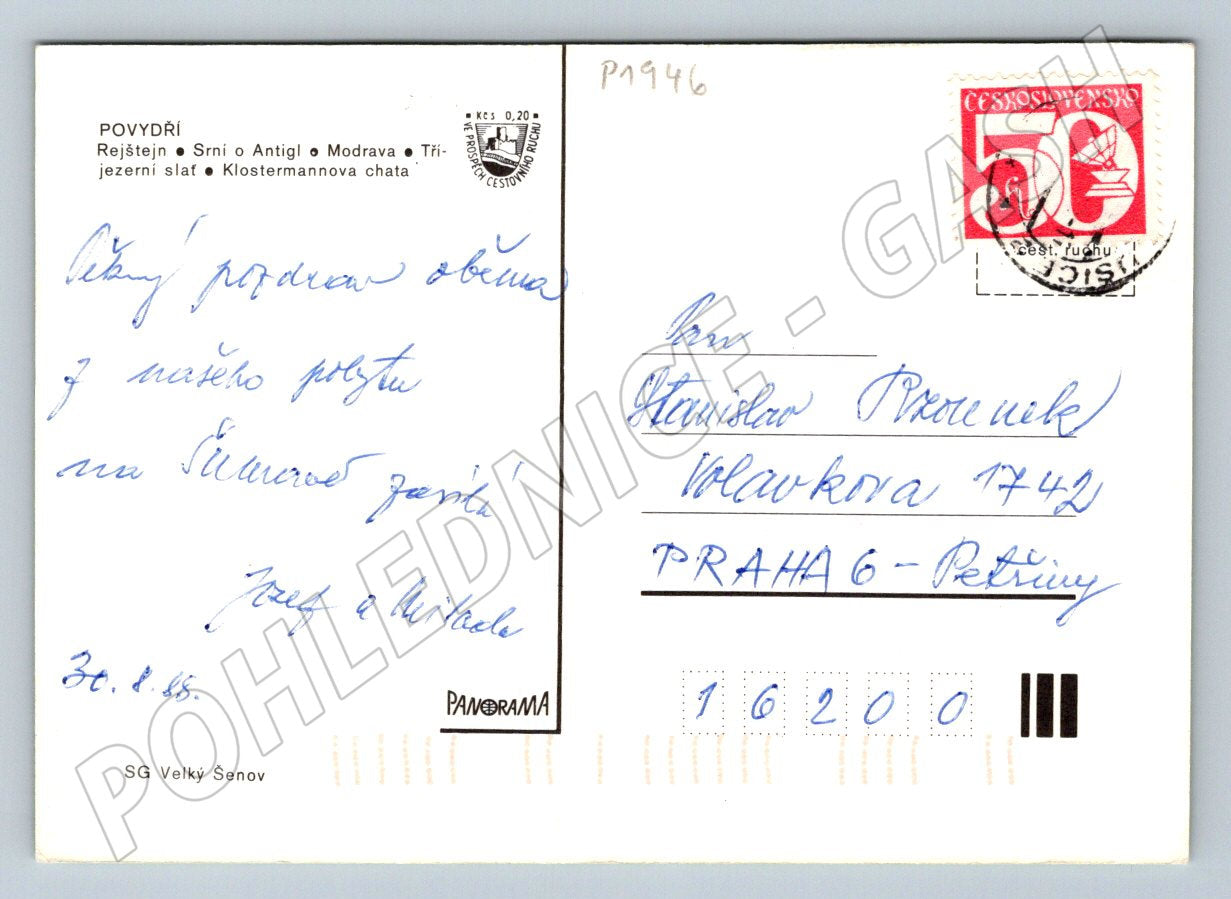 P1946
POVYDŘÍ
Rejštejn • Srní o Antigl • Modrava • Tří-
jezerní slať • Klostermannova chata
Kčs 0,20
VE PROSPĚCH CESTOVNÍHO RUCHU
ČESKOSLOVENSKO
50
cest. ruchu
Pěkný pozdrav oběma
z našeho pobytu
na Šumavě zasílá
Josef a Milada
30. 8. 88.
Pan
Stanislav
Volavkova 1742
PRAHA 6 – Petřiny
16200
PANORAMA
SG Velký Šenov
POHLEDNICE - GASH